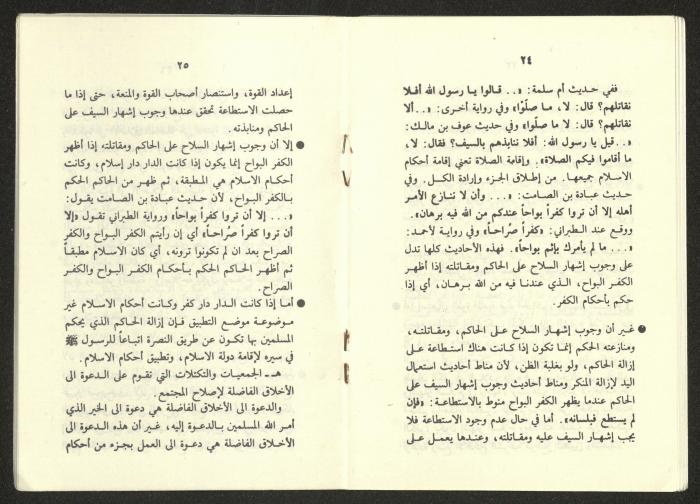 ٢٤
ففي حديث أم سلمة: «.. قالوا يا رسول الله أفلا
نقاتلهم؟ قال: لا، ما صلّوا» وفي رواية أخرى: «.. ألا
نقاتلهم؟ قال: لا ما صلوا» وفي حديث عوف بن مالك:
«.. قيل يا رسول الله: أفلا ننابذهم بالسيف؟ فقال: لا،
ما أقاموا فيكم الصلاة». وإقامة الصلاة تعني إقامة أحكام
الاسلام جميعها. من إطلاق الجزء وإرادة الكل. وفي
حديث عبادة بن الصامت: «... وأن لا ننازع الأمر
أهله إلا أن تروا كفراً بواحاً عندكم من الله فيه برهان».
ووقع عند الطبراني: «كفراً صراحاً» وفي رواية لأحمد:
«... ما لم يأمرك بإثم بواحاً». فهذه الأحاديث كلها تدل
على وجوب إشهار السلاح على الحاكم ومقاتلته إذا أظهر
الكفر البواح، الذي عندنا فيه من الله برهان، أي إذا
حكم بأحكام الكفر.
● غير أن وجوب إشهار السلاح على الحاكم، ومقاتلته،
ومنازعته الحكم إنما تكون إذا كانت هناك استطاعة على
إزالة الحاكم، ولو بغلبة الظن، لأن مناط أحاديث استعمال
اليد لإزالة المنكر ومناط أحاديث وجوب إشهار السيف على
الحاكم عندما يظهر الكفر البواح منوط بالاستطاعة: «فإن
لم يستطع فبلسانه». أما في حال عدم وجود الاستطاعة فلا
يجب إشهار السيف عليه ومقاتلته، وعندها يعمل على
٢٥
إعداد القوة، واستنصار أصحاب القوة والمنعة، حتى إذا ما
حصلت الاستطاعة تحقق عندها وجوب إشهار السيف على
الحاكم ومنابذته.
● إلا أن وجوب إشهار السلاح على الحاكم ومقاتلته إذا أظهر
الكفر البواح إنما يكون إذا كانت الدار دار إسلام، وكانت
أحكام الاسلام هي المطبقة، ثم ظهر من الحاكم الحكم
بالكفر البواح، لأن حديث عبادة بن الصامت يقول:
«... إلا أن تروا كفراً بواحاً» ورواية الطبراني تقول «إلا
أن تروا كفراً صُراحاً» أي إن رأيتم الكفر البواح والكفر
الصراح بعد ان لم تكونوا ترونه، أي كان الاسلام مطبقاً
ثم أظهر الحاكم الحكم بأحكام الكفر البواح والكفر
الصراح.
● أما إذا كانت الدار دار كفر وكانت أحكام الاسلام غير
موضوعة موضع التطبيق فإن إزالة الحاكم الذي يحكم
المسلمين بها تكون عن طريق النصرة اتباعاً للرسول ﷺ
في سيره لإقامة دولة الاسلام، وتطبيق أحكام الاسلام.
هـ - الجمعيات والتكتلات التي تقوم على الدعوة الى
الأخلاق الفاضلة لإصلاح المجتمع.
والدعوة الى الأخلاق الفاضلة هي دعوة الى الخير الذي
أمر الله المسلمين بالدعوة إليه، غير أن هذه الدعوة الى
الأخلاق الفاضلة هي دعوة الى العمل بجزء من أحكام